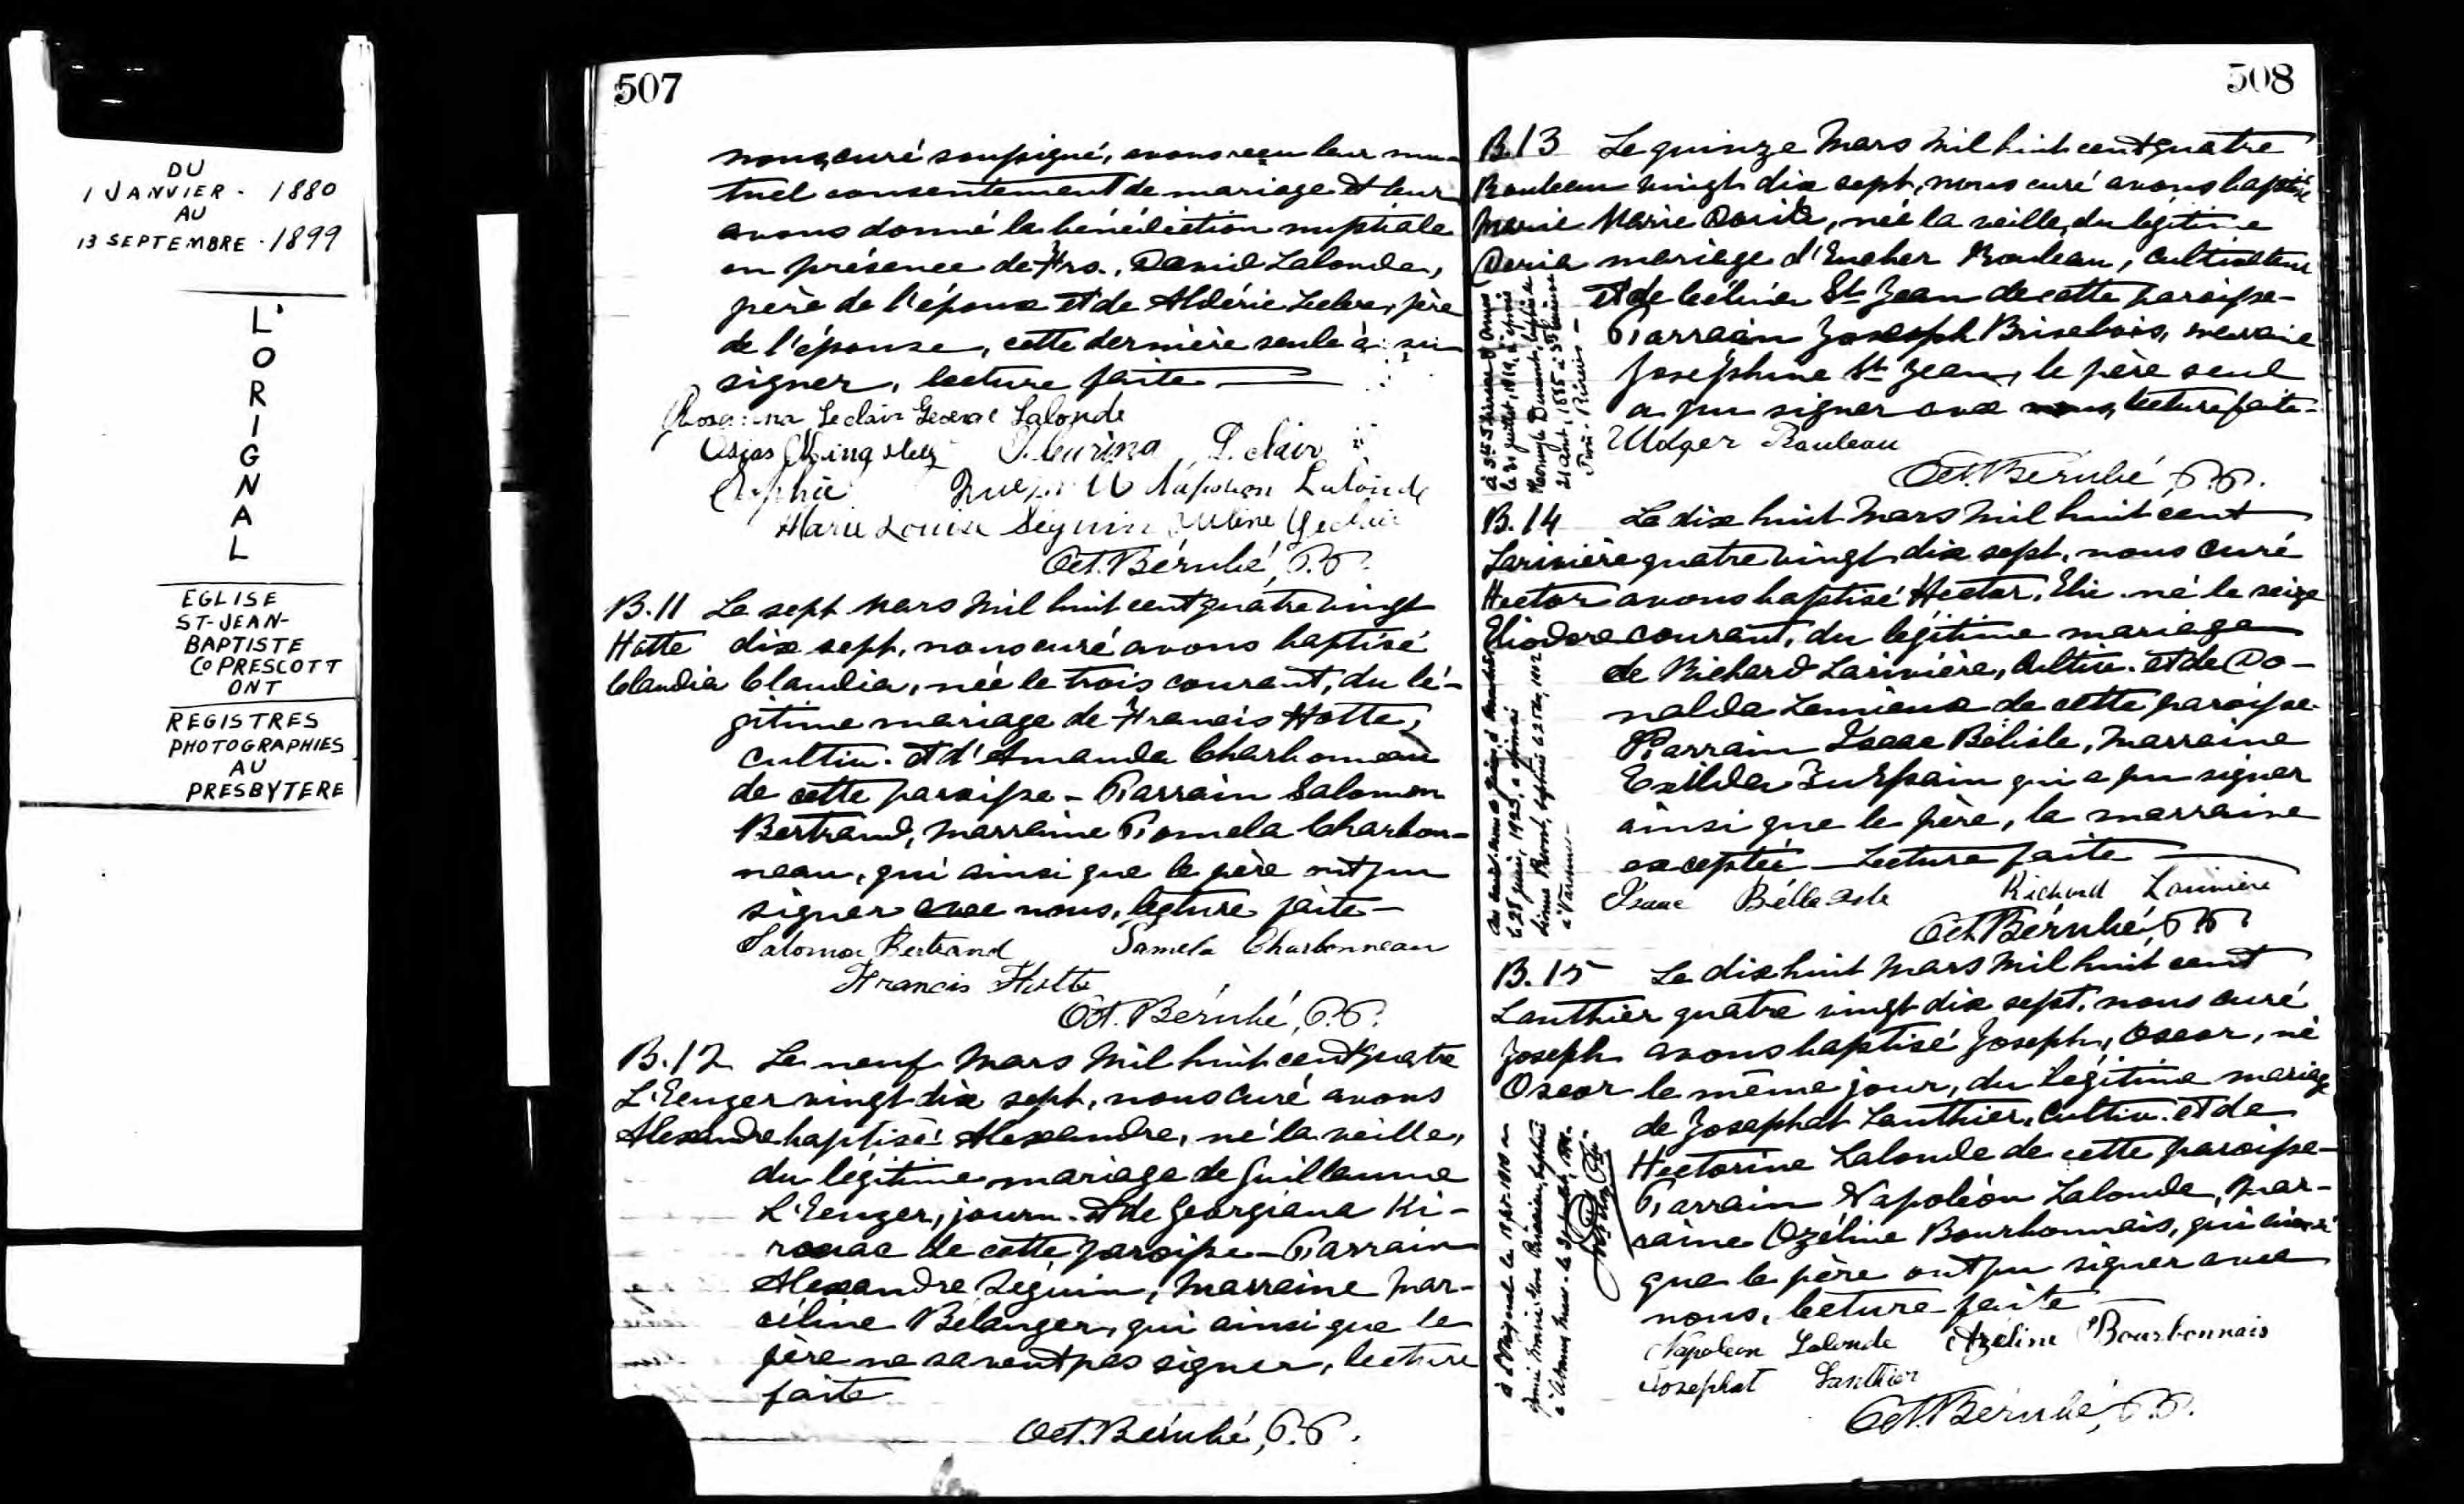 DU
1 JANVIER - 1880
AU
13 SEPTEMBRE - 1899
L'
O
R
I
G
N
A
L
EGLISE
ST-JEAN-
BAPTISTE
CO PRESCOTT
ONT
REGISTRES
PHOTOGRAPHIES
AU
PRESBYTERE
507
nous, curé soussigné, avons reçu leur mu-
tuel consentement de mariage et leur
avons donné la bénédiction nuptiale
en présence de Frs. David Lalonde,
père de l'époux et de Aldéric Leclerc, père
de l'épouse, cette dernière seule a su
signer, lecture faite
Leclair George Lalonde
Osias Kingsley
Napoleon Lalonde
Marie Louise Séguin
Oct. Bérubé, P.P.
B.11 Le sept mars mil huit cent quatre vingt
Hotte dix sept, nous curé avons baptisé
Claudia Claudia, née le trois courant, du lé-
gitime mariage de Francis Hotte,
cultiv. et d'Amanda Charbonneau
de cette paroisse - Parrain Salomon
Bertrand, marraine Pamela Charbon-
neau, qui ainsi que le père ont pu
signer avec nous, lecture faite -
Salomon Bertrand Pamela Charbonneau
Francis Hotte
Oct. Bérubé, P.P.
B.12 Le neuf mars mil huit cent quatre
L'Ecuyer vingt dix sept, nous curé avons
Alexandre baptisé Alexandre, né la veille,
du légitime mariage de Guillaume
L'Ecuyer, journ. et de Georgiana Ki-
rouac de cette paroisse - Parrain
Alexandre Séguin, marraine Mar-
céline Bélanger, qui ainsi que le
père ne savent pas signer, lecture
faite.
Oct. Bérubé, P.P.
508
B.13 Le quinze mars mil huit cent quatre
Rouleau vingt dix sept, nous curé avons baptisé
Marie Marie Doria, née la veille, du légitime
Doria mariage d'Eucher Rouleau, cultivateur
et de Célina St Jean de cette paroisse -
Parrain Joseph Brisebois, marraine
Joséphine St Jean, le père seul
a pu signer avec nous, lecture faite -
Rouleau
Oct. Bérubé, P.P.
B.14 Le dix huit mars mil huit cent
Larivière quatre vingt dix sept, nous curé
Hector avons baptisé Hector, Elie né le seize
Eliodore courant, du légitime mariage
de Richard Larivière, cultiv. et de Do-
nalda Lemieux de cette paroisse -
Parrain Isaac Bélisle, marraine
Exilda Turpain qui a pu signer
ainsi que le père, la marraine
exceptée - Lecture faite
Isaac Richard Larivière
Oct. Bérubé, P.P.
B.15 Le dix huit mars mil huit cent
Lanthier quatre vingt dix sept, nous curé
Joseph avons baptisé Joseph, Oscar, né
Oscar le même jour, du légitime mariage
de Josaphat Lanthier, cultiv. et de
Hectorine Lalonde de cette paroisse -
Parrain Napoléon Lalonde, mar-
raine Ozéline Bourbonnais, qui ainsi
que le père ont pu signer avec
nous, lecture faite
Napoleon Lalonde Azeline Bourbonnais
Josephat Lanthier
Oct. Bérubé, P.P.